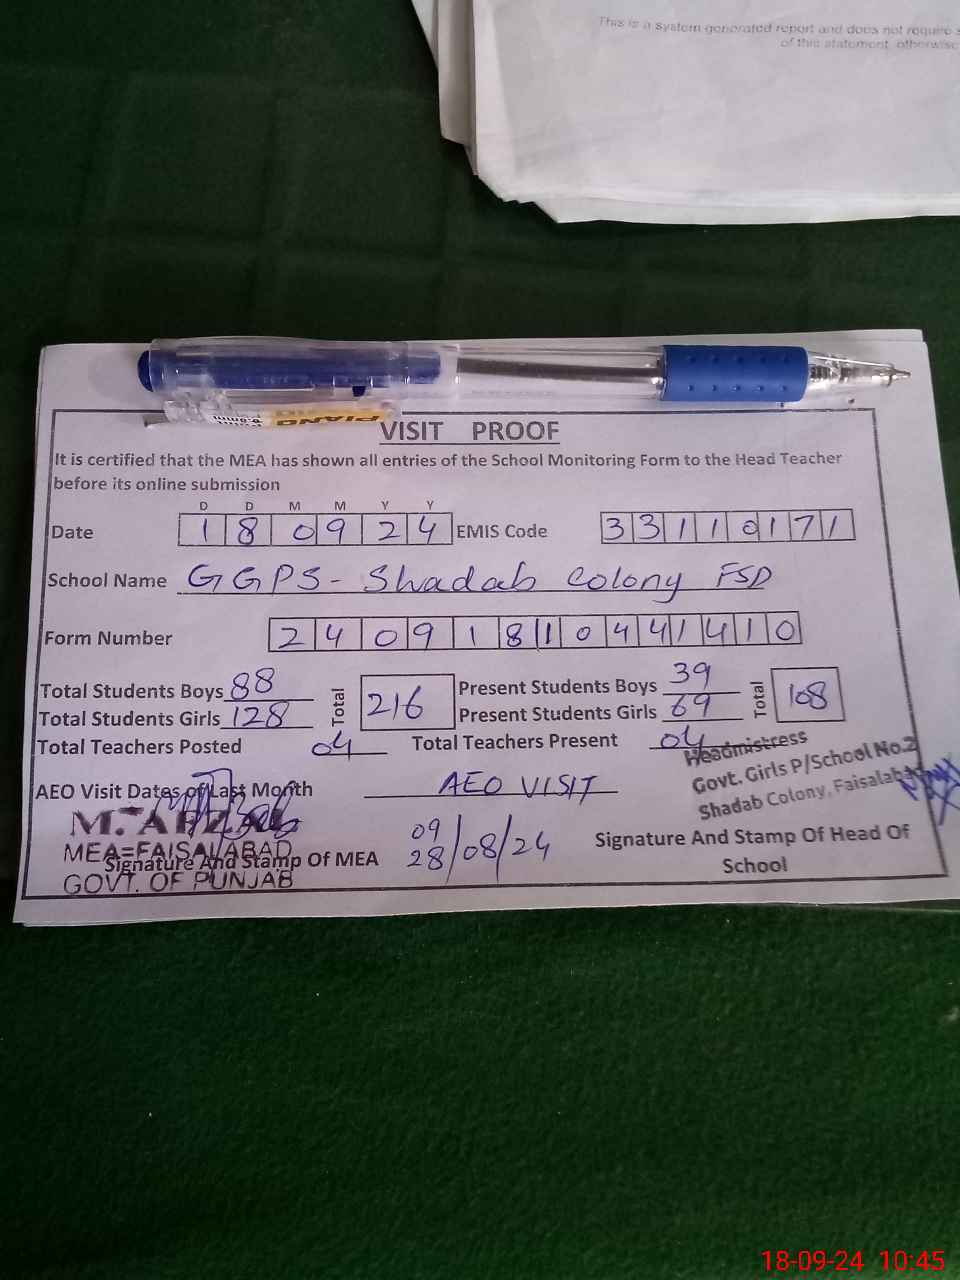 This is a system generated report and does not require
of this statement, otherwise
PIANO
0.8mm
VISIT PROOF
It is certified that the MEA has shown all entries of the School Monitoring Form to the Head Teacher
before its online submission
D D M M Y Y
Date 1 8 0 9 2 4 EMIS Code 3 3 1 1 0 1 7 1
School Name GGPS - Shadab Colony FSD
Form Number 2 4 0 9 1 8 1 0 4 4 1 4 1 0
Total Students Boys 88 Total 216 Present Students Boys 39 Total 108
Total Students Girls 128 Present Students Girls 69
Total Teachers Posted 04 Total Teachers Present 04
Headmistress
Govt. Girls P/School No.2
Shadab Colony, Faisalabad
AEO Visit Dates of Last Month AEO VISIT
M. AFZAL
MEA=FAISALABAD
GOVT. OF PUNJAB
Signature And Stamp Of MEA
09
28/08/24
Signature And Stamp Of Head Of
School
18-09-24 10:45